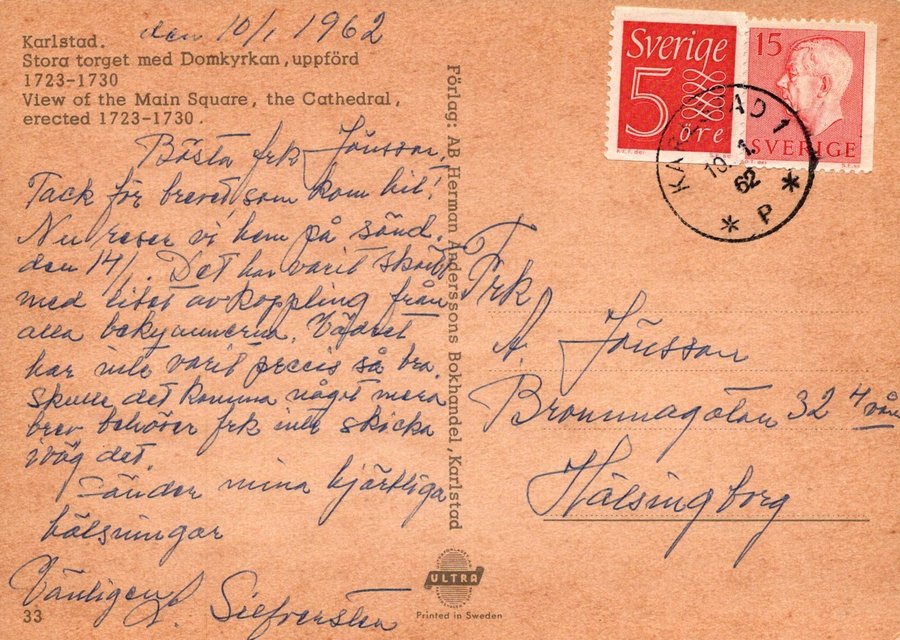 den 10/1 1962
Karlstad.
Stora torget med Domkyrkan, uppförd
1723-1730
View of the Main Square, the Cathedral,
erected 1723-1730.
Bästa frk Jönsson,
Tack för brevet, som kom hit!
Nu reser vi hem på sönd.
den 14/1. Det har varit skönt
med litet avkoppling från
alla bekymmerna. Vädret
har inte varit precis så bra.
Skulle det komma något mera
brev behöver frk inte skicka
iväg det.
Sänder mina hjärtliga
hälsningar
Vänligen
33
Förlag: AB Herman Anderssons Bokhandel, Karlstad
ULTRA
Printed in Sweden
Sverige
5
öre
15
SVERIGE
KARLSTAD 1
10.1.
62
* P *
Frk
A. Jönsson
Brommagatan 32 4 vån
Hälsingborg